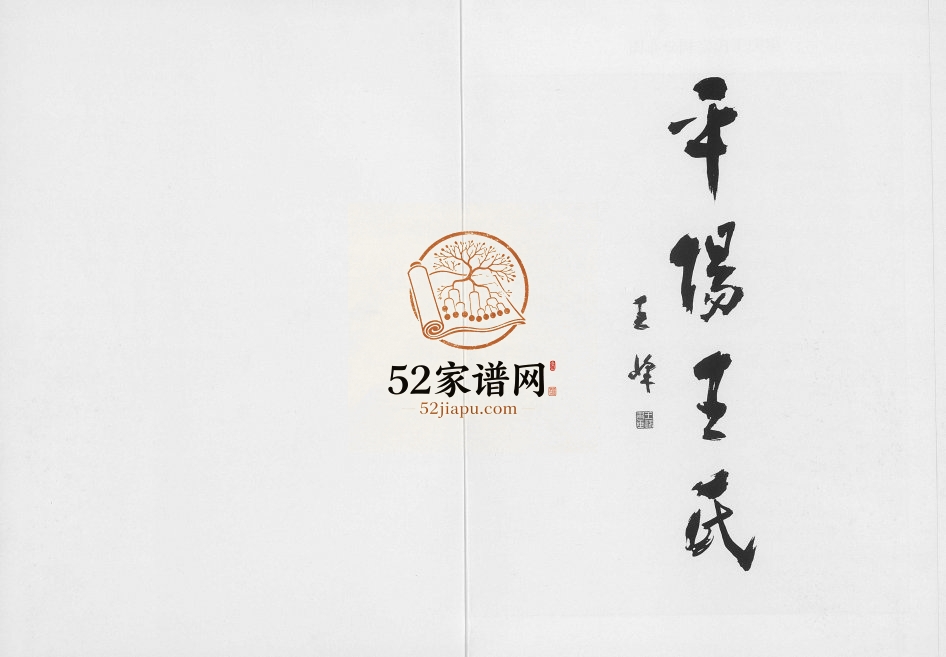 平陽王氏
王峰
52家谱网
52jiapu.com